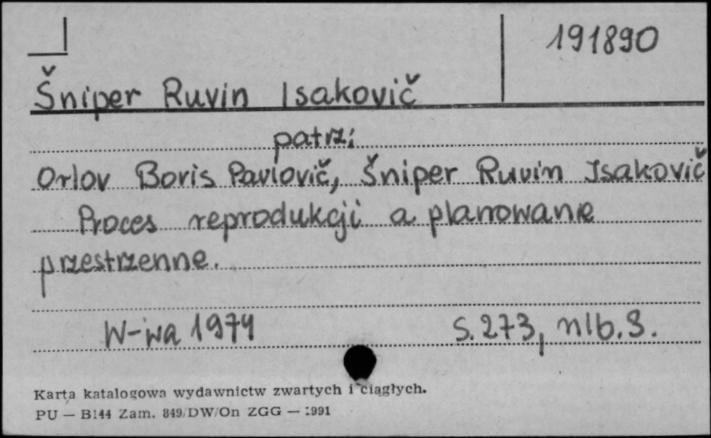 191890
Šniper Ruvin Isakovič
patrz:
Orlov Boris Pavlovič, Šniper Ruvin Isakovič
Proces reprodukcji a planowanie
przestrzenne.
W-wa 1974 s. 273, nlb. 3.
Karta katalogowa wydawnictw zwartych i ciągłych.
PU — B144 Zam. 849/DW/On ZGG — 1991